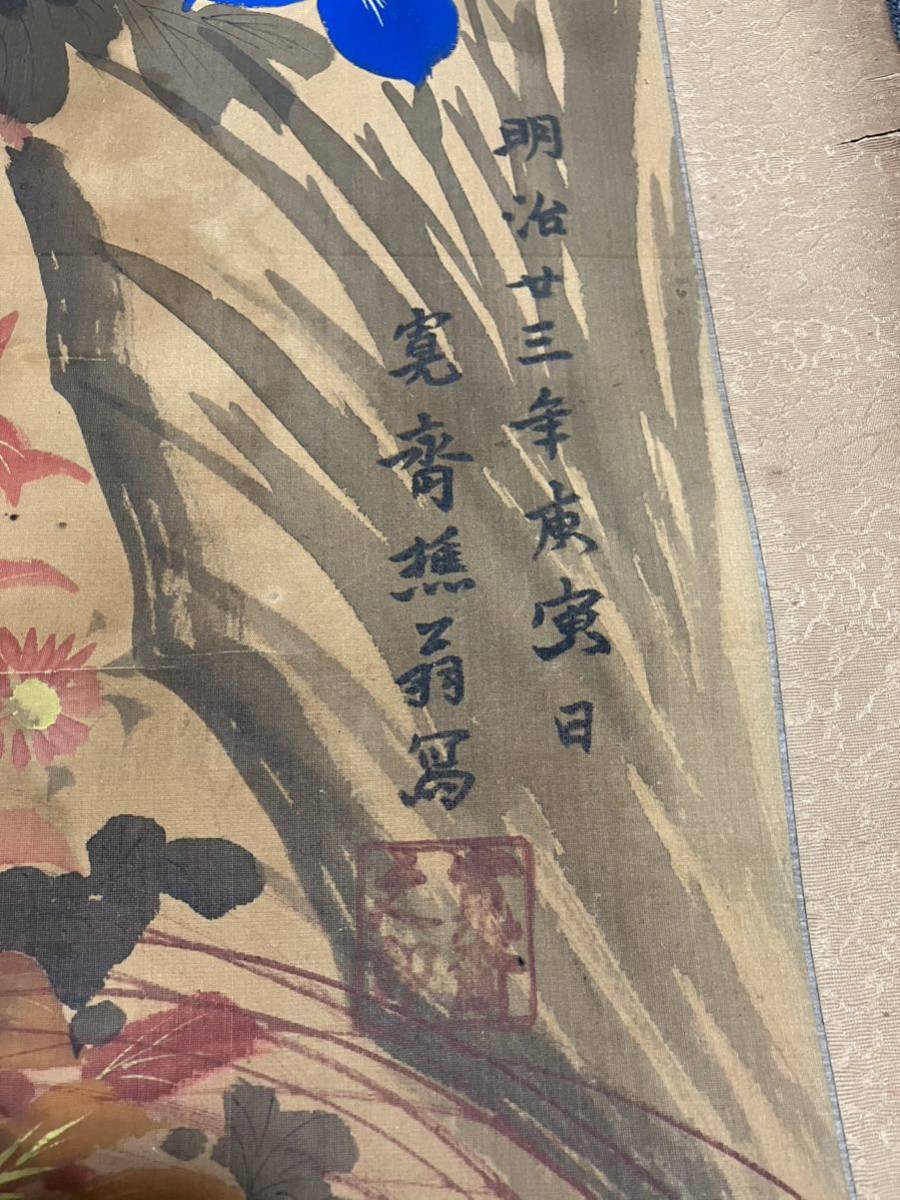 明治廿三年庚寅日
寛齋樵翁寫